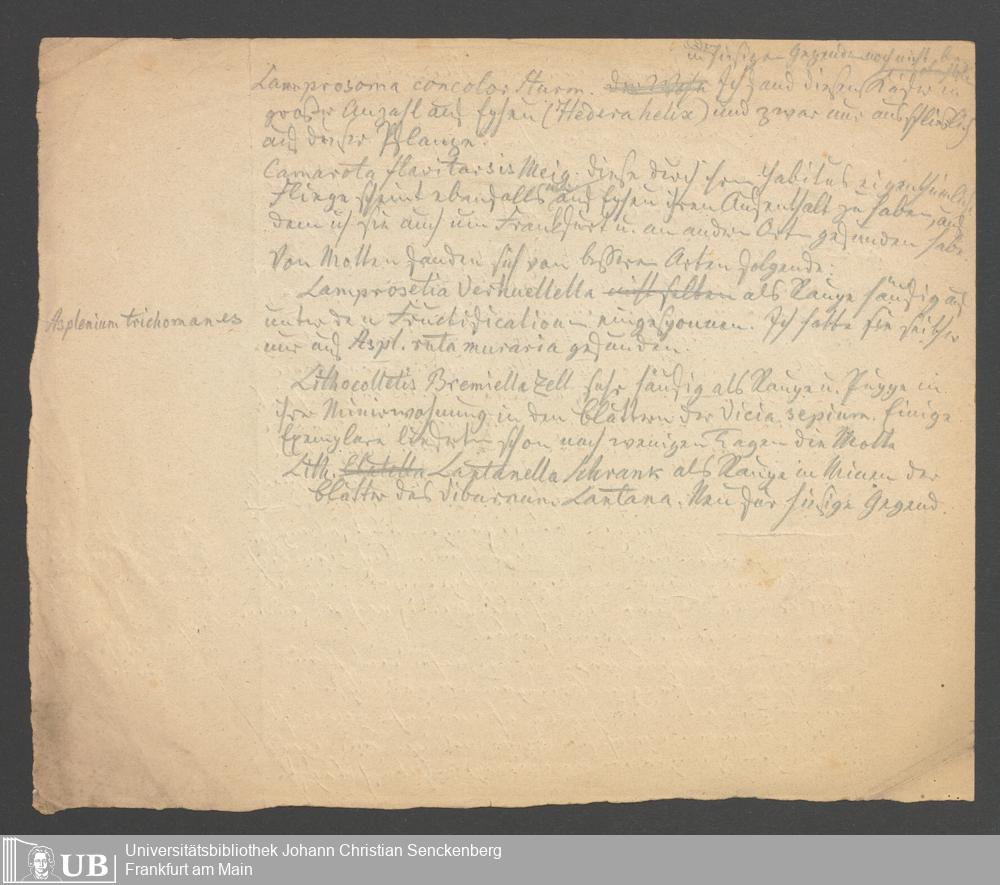 in hiesiger Gegend noch nicht
Lamprosoma concolor Sturm. Ich fand diesen Käfer in
großer Anzahl auf Epheu (Hedera helix) und zwar nur ausschließlich
auf dieser Pflanze.
Camarota flavitarsis Meig. diese durch ihren Habitus eigenthümliche
Fliege scheint ebenfalls auf Epheu ihren Aufenthalt zu haben, auf
dem ich sie auch um Frankfurt u. an andern Orten gefunden habe
Von Motten fanden sich von bessern Arten folgende:
Lamprosetia Verhuellella nicht selten als Raupe häufig auf
Asplenium trichomanes
unter den Fructificationen eingesponnen. Ich hatte sie seither
nur auf Aspl. ruta muraria gefunden.
Lithocolletis Bremiella Zell sehr häufig als Raupe u. Puppe in
ihrer Minirwohnung in den Blättern der Vicia sepium. Einige
Exemplare lieferten schon nach wenigen Tagen die Motte
Lith. Lantanella Schrank als Raupe in Minen der
Blätter des Viburnum Lantana. Neu für hiesige Gegend.
UB
Universitätsbibliothek Johann Christian Senckenberg
Frankfurt am Main